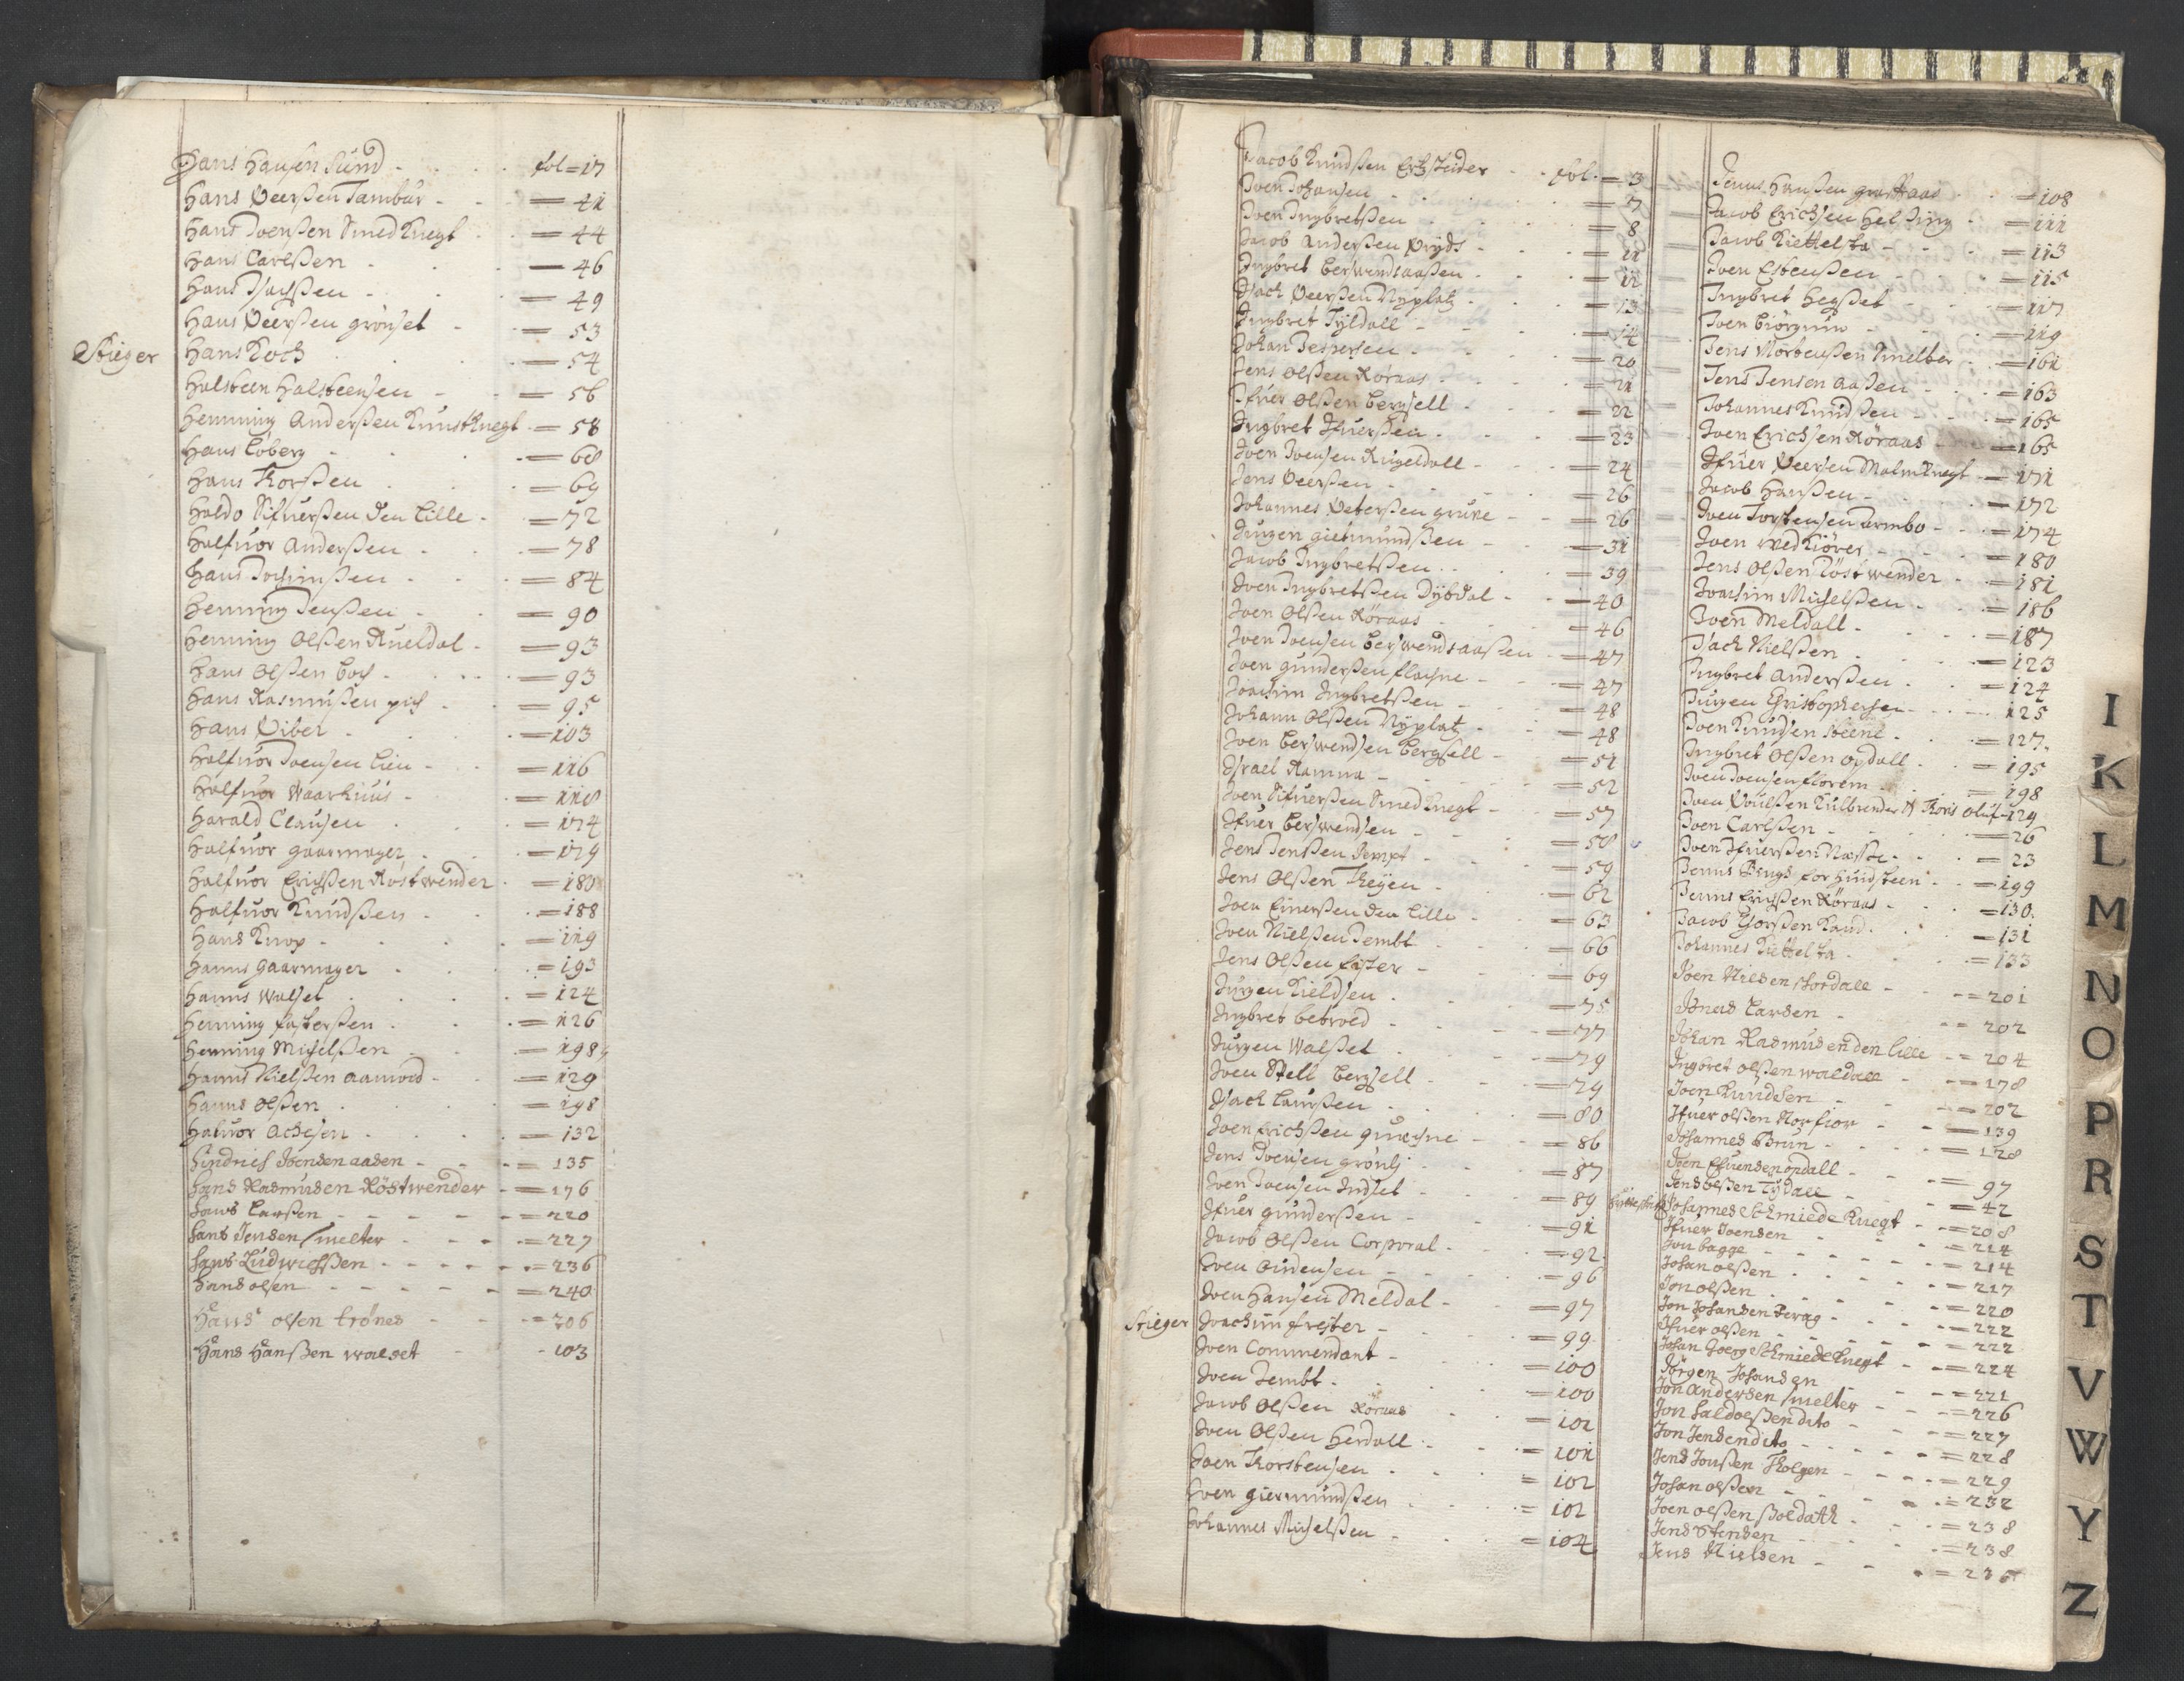 Hans Hansen Sund - fol = 17
Hans Peersen Tambur - = 41
Hans Joensen Smed Knegt = 44
Hans Carlsen - = 46
Hans Isachsen - = 49
Hans Peersen grönset - = 53
Stieger Hans Koch = 54
Halsteen Halsteensen - = 56
Hemming Andersen Kunstknegt - = 58
Hans Coberg - = 68
Hans Thorsen = 69
Haldo Sifuersen den Lille - = 72
Halfuor Andersen - = 78
Hans Jochimsen - = 84
Henning Jensen - = 90
Henning Olsen Rueldal - = 93
Hans Olsen Coch - = 93
Hans Rasmussen pich - = 95
Hans Viber - = 103
Halfuor Joensen Lien - = 116
Halfuor Waarhuus - = 118
Harald Clausen = 174
Halfuor gaarmager = 179
Halfuor Erichsen Röstwender = 183
Halfuor Knudsen - = 188
Hans Knop - = 119
Hanns gaarmager = 193
Hanns Walset = 124
Henning Festersen - = 126
Henning Michelsen = 198
Hanns Nielsen aamoed - = 129
Hanns Olsen = 198
Haluor Achesen - = 132
Hindrich Joensen aasen - = 135
Hans Rasmusen Röstwender - = 176
Hans Larsen - = 220
Hans Jensen smelter - = 227
Hans Ludwichsen - = 236
Hans olsen - = 240
Hans olsen trönes - = 206
Hans Hansen walset - 103
Jacob Knudsen Ertzscheider - fol. = 3
Joen Johansen - = 7
Joen Ingbretsen = 8
Jacob Andersen Pryds - = 11
Ingbret Berswendsaasen - = 12
Isach Peersen Nyplatz - = 13
Ingbret Tyldall - = 14
Johan Jespersen - = 20
Jens Olsen Röraas - = 21
Ifuer Olsen Bergsell - = 22
Ingbret Ifuersen - = 23
Joen Joensen Rugeldall - = 24
Jens Peersen - = 26
Johannes Petersen grune - = 26
Jurgen giermundsen - = 31
Jacob Ingbretsen - = 39
Joen Ingbretsen Dybdal - = 40
Joen Olsen Röraas = 46
Joen Joensen Berswendsaasen = 47
Joen gundersen floyne - = 47
Joachim Ingbretsen - = 48
Johann Olsen Nyplatz - = 48
Joen Berswendsen Bergsell - = 51
Israel Ramna - = 52
Joen Sifuersen Smed Knegt - = 57
Ifuer Berswendsen - = 58
Jens Jensen Jempt - = 59
Jens Olsen Theyen - = 62
Joen Einersen den Lille - = 63
Joen Nielsen Jembt = 66
Jens Olsen Fester - = 69
Jurgen Kieldsen - = 75
Ingbret Betvoed - = 77
Jurgen Walset = 79
Joen Stell Bergsell - = 79
Isach Laursen - = 80
Joen Erichsen gruesne - = 86
Jens Joensen grönli = 87
Joen Joensen Indset - = 89
Ifuer gundersen - = 91
Jacob Olsen Corporal - = 92
Joen Oudensen - = 96
Joen Hansen Meldal - = 97
Stieger Joachim Frester - = 99
Joen Commendant - = 100
Joen Jembt - = 100
Jacob Olsen Röraas = 101
Joen Olsen Herdall - = 101
Joen Thorstensen = 102
Joen giermundsen = 102
Johannes Michelsen - = 104
Jenns Hansen graaRaas = 108
Jacob Erichsen Helsing = 111
Jacob Kiettelsta - = 113
Joen Estensen - = 115
Ingbret Hegset - = 117
Joen Biörgum - = 119
Jens Mortensen Smelter - = 161
Jens Jensen aasen - = 163
Johannes Knudsen = 165
Joen Erichsen Röraas - = 165
Ifuer Peersen Malmknegt - = 171
Jacob Hansen - = 172
Joen Torstensen Jembo - = 174
Joen ved Kiöres - = 180
Jens Olsen Röstwender - = 181
Joachim Michelsen - = 186
Joen Meldall - = 187
Isach Nielsen - = 123
Ingbret Andersen - = 124
Jurgen Christophersen - 125
Joen Knudsen Steene - = 127
Ingbret Olsen opdall - = 195
Joen Joensen florem - = 198
Joen Poulsen Kulbrender & Thoris Oluf = 124
Joen Carlsen - = 26
Joen Ifuersen Næste - = 23
Jenns Bings for hundsteen - = 199
Jenns Erichsen Röraas - = 130
Jacob Thorsen Rand - = 131
Johannes Kiettelsta - = 133
Joen Nielsen Stordall - = 201
Jonas Larsen - = 202
Johan Rasmusen den lille - = 204
Ingbret olsen waldall - = 178
Joen Knudsen - = 202
Ifuer olsen Norfior - = 139
Johannes Brun - = 128
Joen Estensen opdall - = 97
Jens olsen Tydall - = 42
Johannes Schmiede Knegt - = 208
Ifuer Joensen - = 214
Jon bagge - = 214
Johan olsen - = 217
Jon olsen - = 220
Jon Johansen Berag - = 222
Ifuer olsen - = 222
Johan Joerg Schmiede Knegt - = 224
Jörgen Johansen = 221
Jon andersen smelter - = 226
Jon Haldoesen dito - = 227
Jon Jensen dito - = 228
Jens Jonsen Tholgen - = 229
Johan olsen - = 232
Joen olsen Soldath - = 238
Jens Stensen = 238
Jens Nielsen - = 236
I
K
L
M
N
O
P
R
S
T
V
W
Y
Z